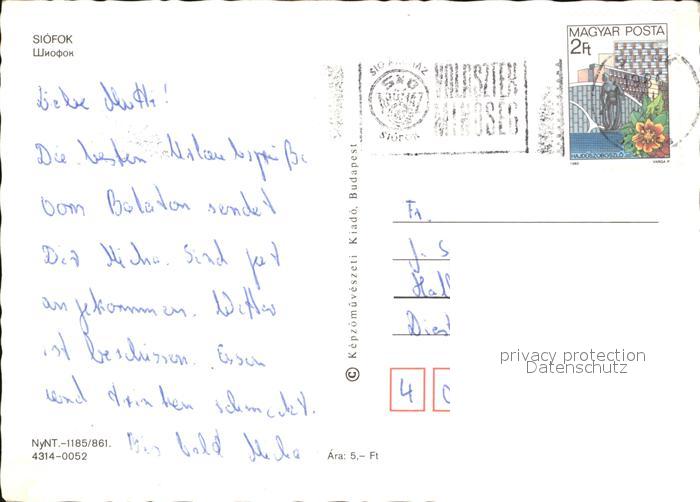 SIÓFOK
Шиофок
Liebe Mutti!
Die besten Urlaubsgrüße
vom Balaton sendet
Dir Micha. Sind gut
angekommen. Wetter
ist beschissen. Essen
und trinken schmeckt.
Bis bald Micha
NyNT.–1185/861.
4314-0052
Ára: 5,– Ft
© Képzőművészeti Kiadó, Budapest
SIÓFOK
MAGYAR POSTA
2Ft
HAJDÚSZOBOSZLÓ
VARGA P.
Fr.
J. S
Hal
4
privacy protection
Datenschutz